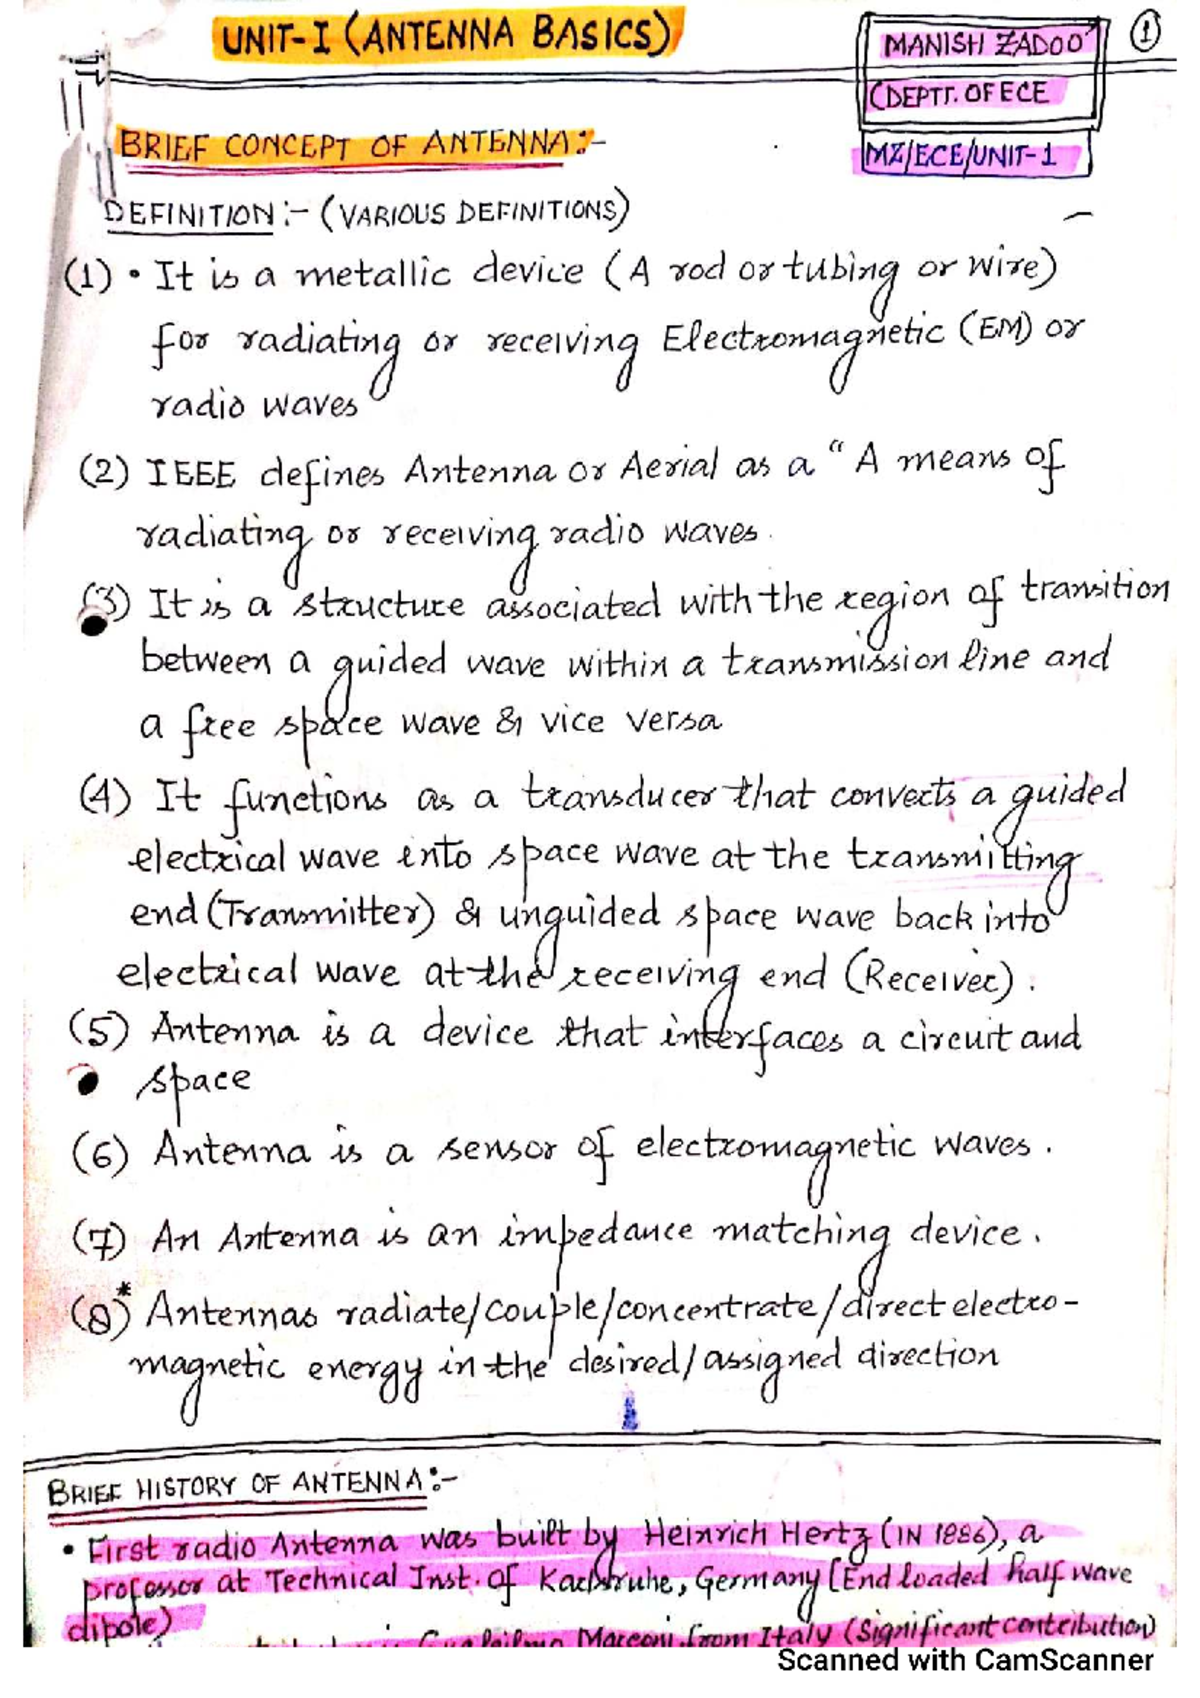 UNIT-I (ANTENNA BASICS)
MANISH ZADOO
(DEPTT. OF ECE
MZ/ECE/UNIT-1
1
BRIEF CONCEPT OF ANTENNA:-
DEFINITION:- (VARIOUS DEFINITIONS)
(1) • It is a metallic device (A rod or tubing or wire)
for radiating or receiving Electromagnetic (EM) or
radio waves
(2) IEEE defines Antenna or Aerial as a "A means of
radiating or receiving radio waves.
(3) It is a structure associated with the region of transition
between a guided wave within a transmission line and
a free space wave & vice versa
(4) It functions as a transducer that converts a guided
electrical wave into space wave at the transmitting
end (Transmitter) & unguided space wave back into
electrical wave at the receiving end (Receiver).
(5) Antenna is a device that interfaces a circuit and
space
(6) Antenna is a sensor of electromagnetic waves.
(7) An Antenna is an impedance matching device.
(8)* Antennas radiate/couple/concentrate/direct electro-
magnetic energy in the desired/assigned direction
BRIEF HISTORY OF ANTENNA:-
• First radio Antenna was built by Heinrich Hertz (IN 1886), a
professor at Technical Inst. of Karlsruhe, Germany [End loaded half wave
dipole)
Marconi from Italy (Significant contribution)
Scanned with CamScanner